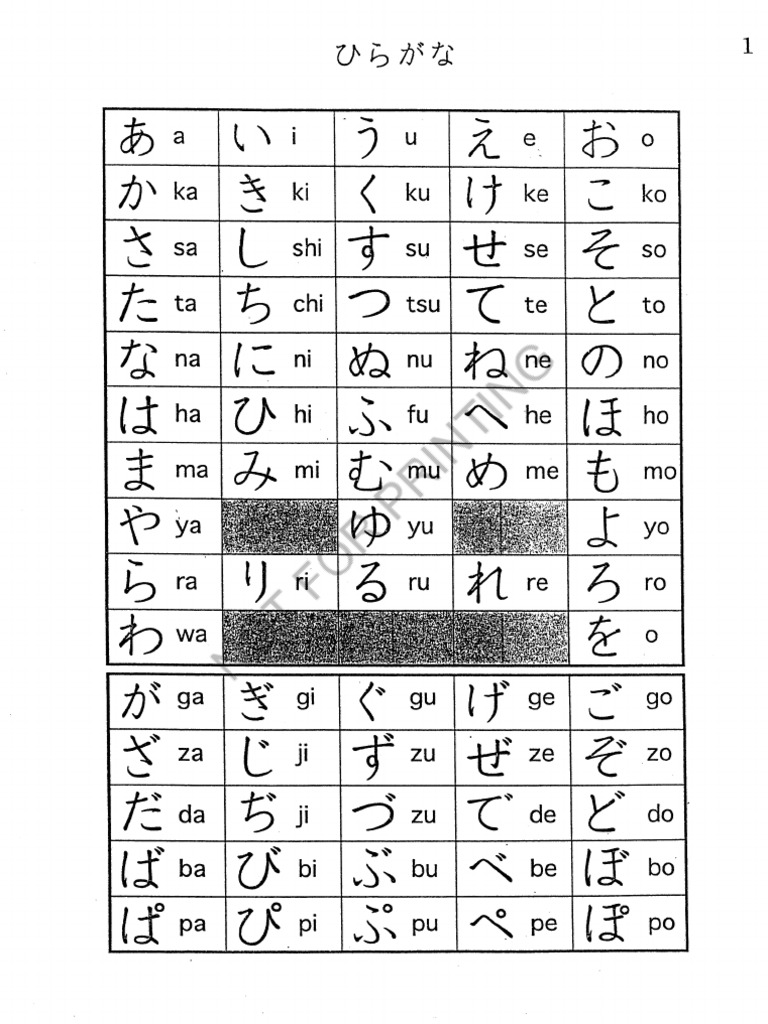 ひらがな
1
あ a い i う u え e お o
か ka き ki く ku け ke こ ko
さ sa し shi す su せ se そ so
た ta ち chi つ tsu て te と to
な na に ni ぬ nu ね ne の no
は ha ひ hi ふ fu へ he ほ ho
ま ma み mi む mu め me も mo
や ya ゆ yu よ yo
ら ra り ri る ru れ re ろ ro
わ wa を o
が ga ぎ gi ぐ gu げ ge ご go
ざ za じ ji ず zu ぜ ze ぞ zo
だ da ぢ ji づ zu で de ど do
ば ba び bi ぶ bu べ be ぼ bo
ぱ pa ぴ pi ぷ pu ぺ pe ぽ po
NOT FOR PRINTING